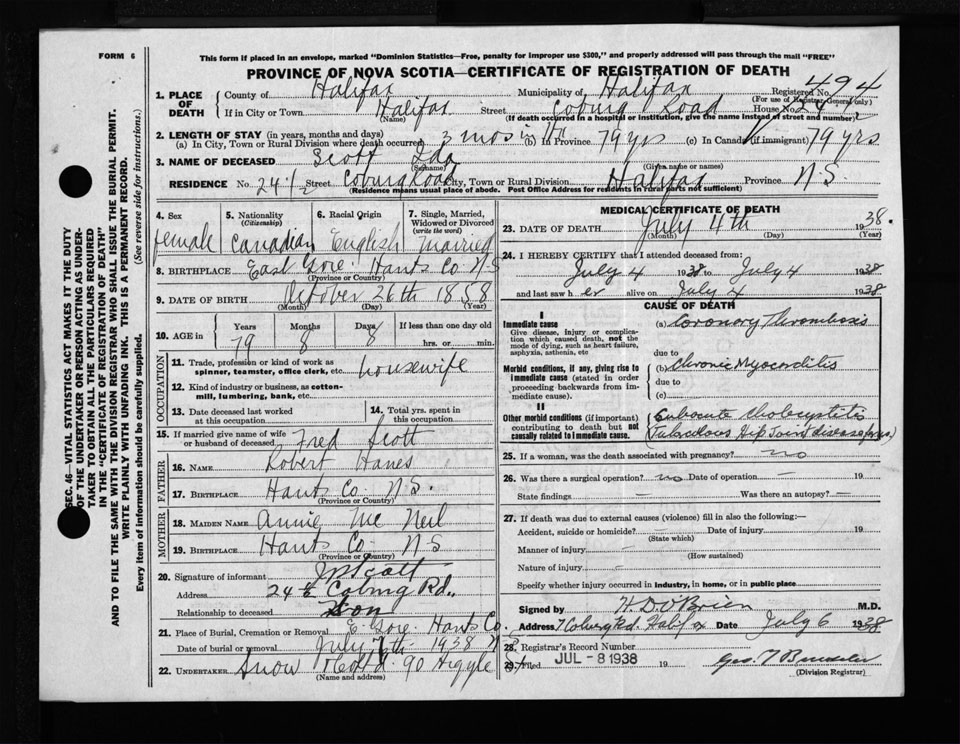 FORM 6
This form if placed in an envelope, marked "Dominion Statistics—Free, penalty for improper use $300," and properly addressed will pass through the mail "FREE"
PROVINCE OF NOVA SCOTIA—CERTIFICATE OF REGISTRATION OF DEATH
SEC. 46—VITAL STATISTICS ACT MAKES IT THE DUTY
OF THE UNDERTAKER OR PERSON ACTING AS UNDER-
TAKER TO OBTAIN ALL THE PARTICULARS REQUIRED
IN THE "CERTIFICATE OF REGISTRATION OF DEATH"
AND TO FILE THE SAME WITH THE DIVISION REGISTRAR WHO SHALL ISSUE THE BURIAL PERMIT.
WRITE PLAINLY WITH UNFADING INK. THIS IS A PERMANENT RECORD.
Every item of information should be carefully supplied. (See reverse side for instructions.)
1. PLACE OF DEATH County of Halifax Municipality of Halifax Registered No. 494
(For use of Registrar-General only)
If in City or Town Halifax Street Coburg Road House No. 24 1/2
(Name) (If death occurred in a hospital or institution, give the name instead of street and number)
2. LENGTH OF STAY (in years, months and days)
(a) In City, Town or Rural Division where death occurred 3 mos (b) In Province 79 yrs (c) In Canada (if immigrant) 79 yrs
3. NAME OF DECEASED Scott Ida
(Surname) (Given name or names)
RESIDENCE No. 24 1/2 Street Coburg Road City, Town or Rural Division Halifax Province N.S.
(Residence means usual place of abode. Post Office Address for residents in rural parts not sufficient)
4. Sex 5. Nationality (Citizenship) 6. Racial Origin 7. Single, Married, Widowed or Divorced (write the word)
female Canadian English married
8. BIRTHPLACE East Gore Hants Co N.S
(Province or Country)
9. DATE OF BIRTH October 26th 1858
(Month) (Day) (Year)
10. AGE in Years Months Days If less than one day old
79 8 8 hrs. or min.
OCCUPATION
11. Trade, profession or kind of work as spinner, teamster, office clerk, etc. housewife
12. Kind of industry or business, as cotton-mill, lumbering, bank, etc.
13. Date deceased last worked at this occupation 14. Total yrs. spent in this occupation
15. If married give name of wife or husband of deceased. Fred Scott
FATHER
16. NAME Robert Hanes
17. BIRTHPLACE Hants Co N.S.
(Province or Country)
MOTHER
18. MAIDEN NAME Annie Mc Neil
19. BIRTHPLACE Hants Co N S
(Province or Country)
20. Signature of informant Scott
Address 24 1/2 Coburg Rd.,
Relationship to deceased Son
21. Place of Burial, Cremation or Removal E. Gore. Hants Co.
Date of burial or removal July 7th 1938
22. UNDERTAKER Snow & Co Ltd. 90 Argyle St
(Name and address)
MEDICAL CERTIFICATE OF DEATH
23. DATE OF DEATH July 4th 1938.
(Month) (Day) (Year)
24. I HEREBY CERTIFY that I attended deceased from:
July 4 1938 to July 4 1938
and last saw her alive on July 4 1938
CAUSE OF DEATH
I
Immediate cause
Give disease, injury or complication which caused death, not the mode of dying, such as heart failure, asphyxia, asthenia, etc
(a) Coronary Thrombosis
due to
Morbid conditions, if any, giving rise to immediate cause (stated in order proceeding backwards from immediate cause).
(b) Chronic Myocarditis
due to
(c)
II
Other morbid conditions (if important) contributing to death but not causally related to immediate cause.
Subacute Cholecystitis
(Tuberculous Hip Joint disease)
25. If a woman, was the death associated with pregnancy? no
26. Was there a surgical operation? no Date of operation — 19
State findings — Was there an autopsy? —
27. If death was due to external causes (violence) fill in also the following:—
Accident, suicide or homicide? — Date of injury — 19
(State which)
Manner of injury —
(How sustained)
Nature of injury —
Specify whether injury occurred in industry, in home, or in public place
Signed by H. D. O'Brien M.D.
Address 7 Coburg Rd. Halifax Date July 6 1938
28. Registrar's Record Number
29. Filed JUL - 8 1938 19
(Division Registrar)